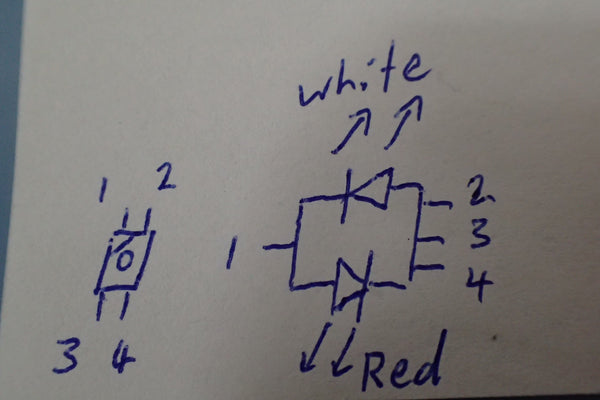 white
1 2
2
3
1
4
3 4
Red